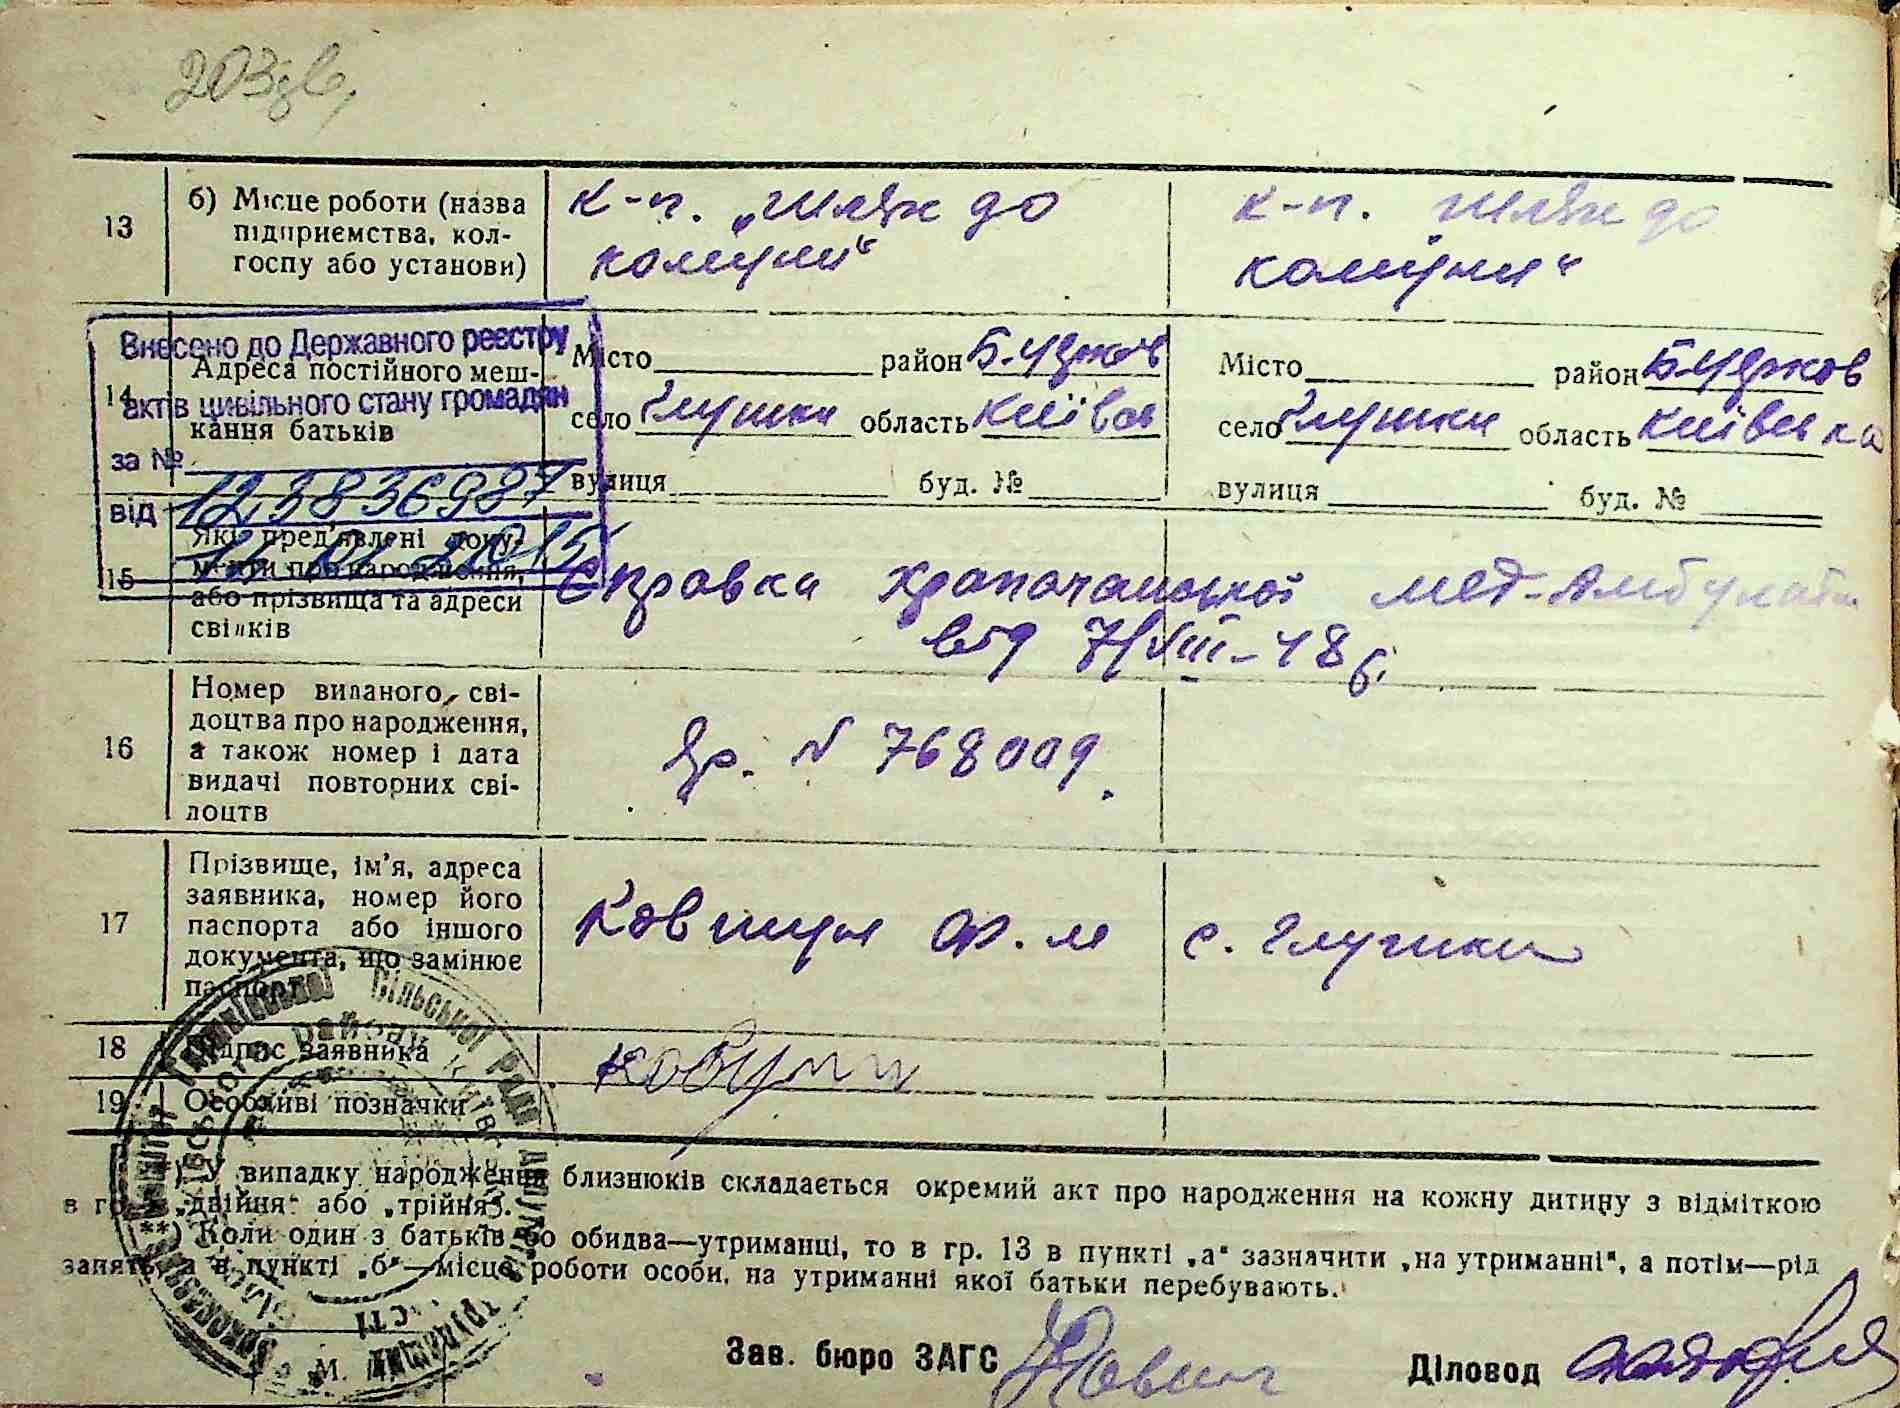 203зв,
13
б) Місце роботи (назва
підприємства, кол-
госпу або установи)
к-п. „шлях до
комуни“
к-п. шлях до
комуни“
Внесено до Державного реєстру
актів цивільного стану громадян
за № 123836987
від
14
Адреса постійного меш-
кання батьків
Місто район Б-Церков
село Глушки область Київсь
вулиця буд. №
Місто район Б-Церков
село Глушки область Київська
вулиця буд. №
15
Які пред'явлені доку-
менти про народження,
або прізвища та адреси
свідків
Справка мед-Амбулатор
від 7/VIII-48 б.
16
Номер виданого сві-
доцтва про народження,
а також номер і дата
видачі повторних сві-
доцтв
№ 768009
17
Прізвище, ім'я, адреса
заявника, номер його
паспорта або іншого
документа, що замінює
паспорт
Ковшун м
с. Глушки
18
Підпис заявника
19
Особливі позначки
*) У випадку народження близнюків складається окремий акт про народження на кожну дитину з відміткою
в гр. „двійня“ або „трійня“.
**) Коли один з батьків бо обидва—утриманці, то в гр. 13 в пункті „а“ зазначити „на утриманні“, а потім—рід
занять, а в пункті „б“—місце роботи особи, на утриманні якої батьки перебувають.
Сільської Ради депутатів трудящих
М. П.
Зав. бюро ЗАГС
Діловод